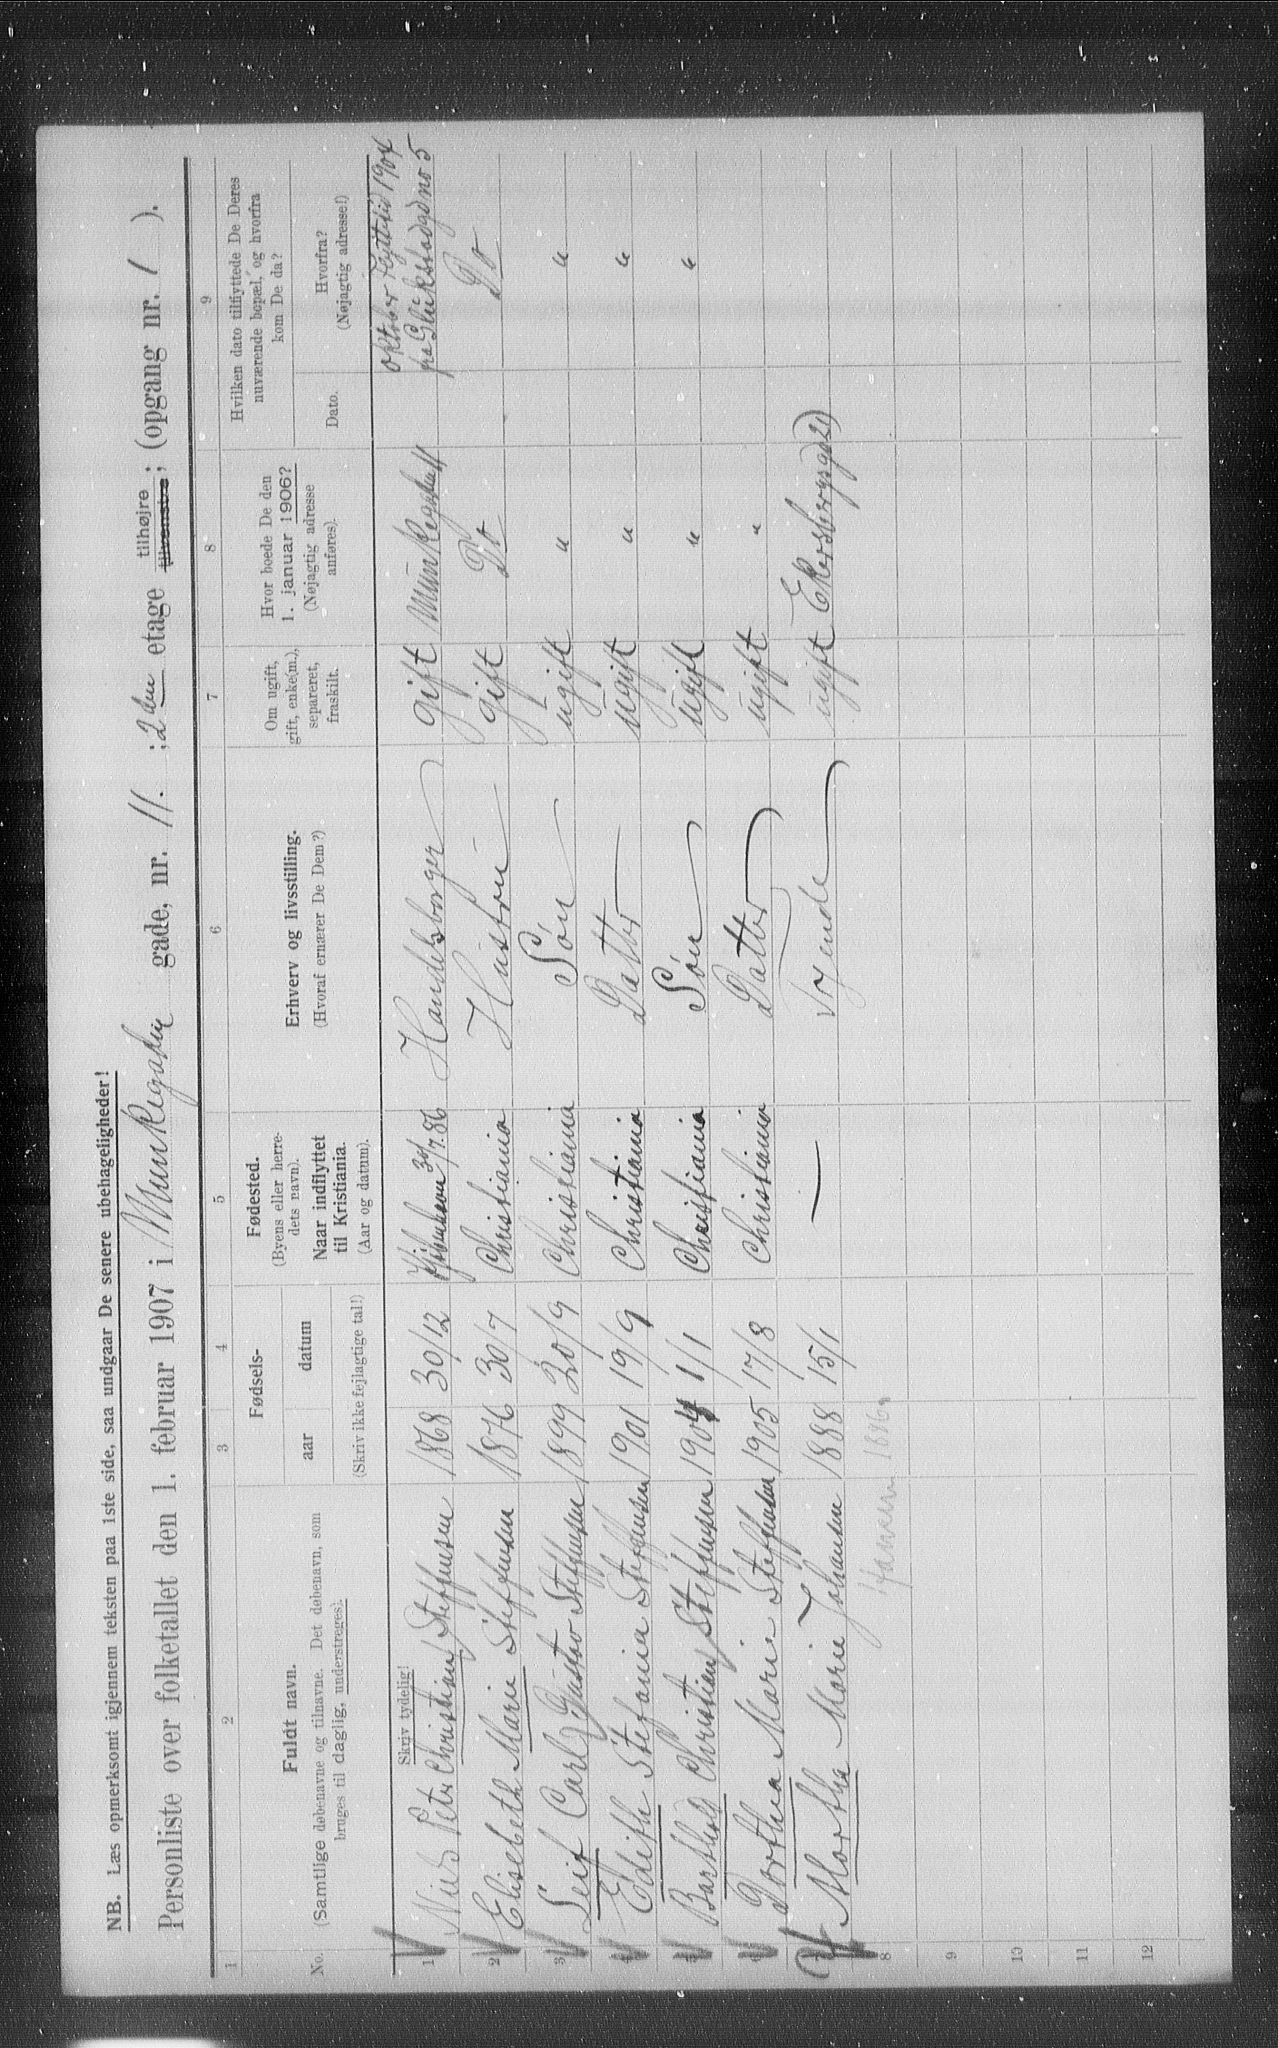 NB. Læs opmerksomt igjennem teksten paa 1ste side, saa undgaar De senere ubehageligheder!
Personliste over folketallet den 1. februar 1907 i Munkegaden gade, nr. 11. ; 2den etage tilhøjre ; tilvenstre ; (opgang nr. 1 ).
1 2 3 4 5 6 7 8 9
No.
Fuldt navn.
(Samtlige døbenavne og tilnavne. Det døbenavn, som
bruges til daglig, understreges).
Fødsels-
aar datum
(Skriv ikke fejlagtige tal!)
Fødested.
(Byens eller herre-
dets navn).
Naar indflyttet
til Kristiania.
(Aar og datum).
Erhverv og livsstilling.
(Hvoraf ernærer De Dem?)
Om ugift,
gift, enke(m.),
separeret,
fraskilt.
Hvor boede De den
1. januar 1906?
(Nøjagtig adresse
anføres).
Hvilken dato tilflyttede De Deres
nuværende bopæl, og hvorfra
kom De da?
Dato.
Hvorfra?
(Nøjagtig adresse!)
Skriv tydelig!
1 Niels Peter Christian Steffensen 1868 30/12 30/7. 86 Handelsborger gift oktober 1904
fra no 5
2 Elisebeth Marie Steffensen 1876 30/7 Christiania Hustru gift Do Do
3 Leif Carl Gustav Steffensen 1899 20/9 Christiania Søn ugift " "
4 Edith Stefania Steffensen 1901 19/9 Christiania Datter ugift " "
5 Barthold Christian Steffensen 1904 1/1 Christiania Søn ugift " "
6 Dorthea Marie Steffensen 1905 17/8 Christiania Datter ugift "
7 Martha Marie Johansen 1888 15/1 — ugift
8
9
10
11
12